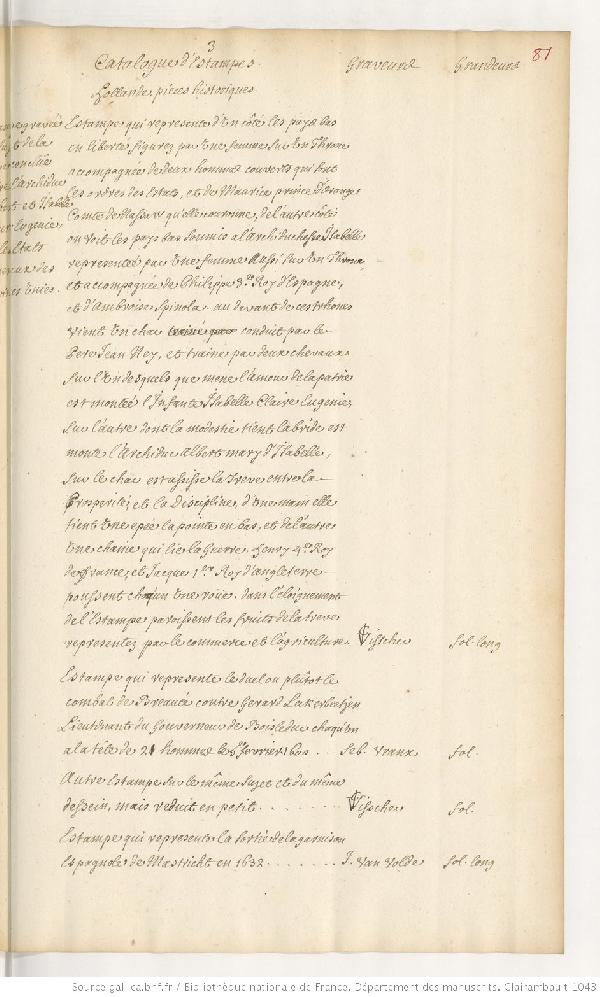 3
81
Catalogue d'Estampes. Graveurs Grandeurs
Hollande, pieces historiques
Estampe qui represente d'un côté les pays bas
en liberté figurez par une femme sur un Throne
acompagnée de deux hommes couverts qui sont
les ordres des Estats, et de Maurice prince d'Orange
Comte de Nassau qu'elle couronne, de l'autre côté
on voit les pays bas soumis a l'archiduchesse Isabelle
representée par une femme aussi sur un Throne,
et acompagnée de Philippe 3.e Roy d'Espagne,
et d'Ambroise Spinola. au devant de ces thrones
vient un char conduit par le
Pere Jean Ney, et trainé par deux chevaux
sur l'un desquels que mene l'amour de la patrie
est montée l'Infante Isabelle Claire Eugenie,
sur l'autre dont la modestie tient la bride est
monté l'Archiduc Albert mary d'Isabelle,
sur le char est assise la Treve entre la
Prosperité, et la Discipline, d'une main elle
tient une epée la pointe en bas, et de l'autre
une chaine qui lie la Guerre. Henry 4.e Roy
de France, et Jacque 1.er Roy d'angleterre
poussent chaqun une roue, dans l'éloignement
de l'Estampe paroissent les fruits de la treve
representez par le commerce et l'agriculture Visscher fol. long
Estampe qui represente le duel ou plûtost le
combat de Breauté contre Gerard
Lieutenant du Gouverneur de Boisleduc chaqun
a la tête de 21 hommes le fevrier 1600 . . Seb. Vranx fol.
Autre Estampe sur le même sujet et du même
dessein, mais reduit en petit . . . . . . . Visscher fol.
Estampe qui represente la sortie de la garnison
Espagnole de Mastricht en 1632 . . . . . . . J. Van Velde fol. long
Source gallica.bnf.fr / Bibliothèque nationale de France. Département des manuscrits. Clairambault 1043